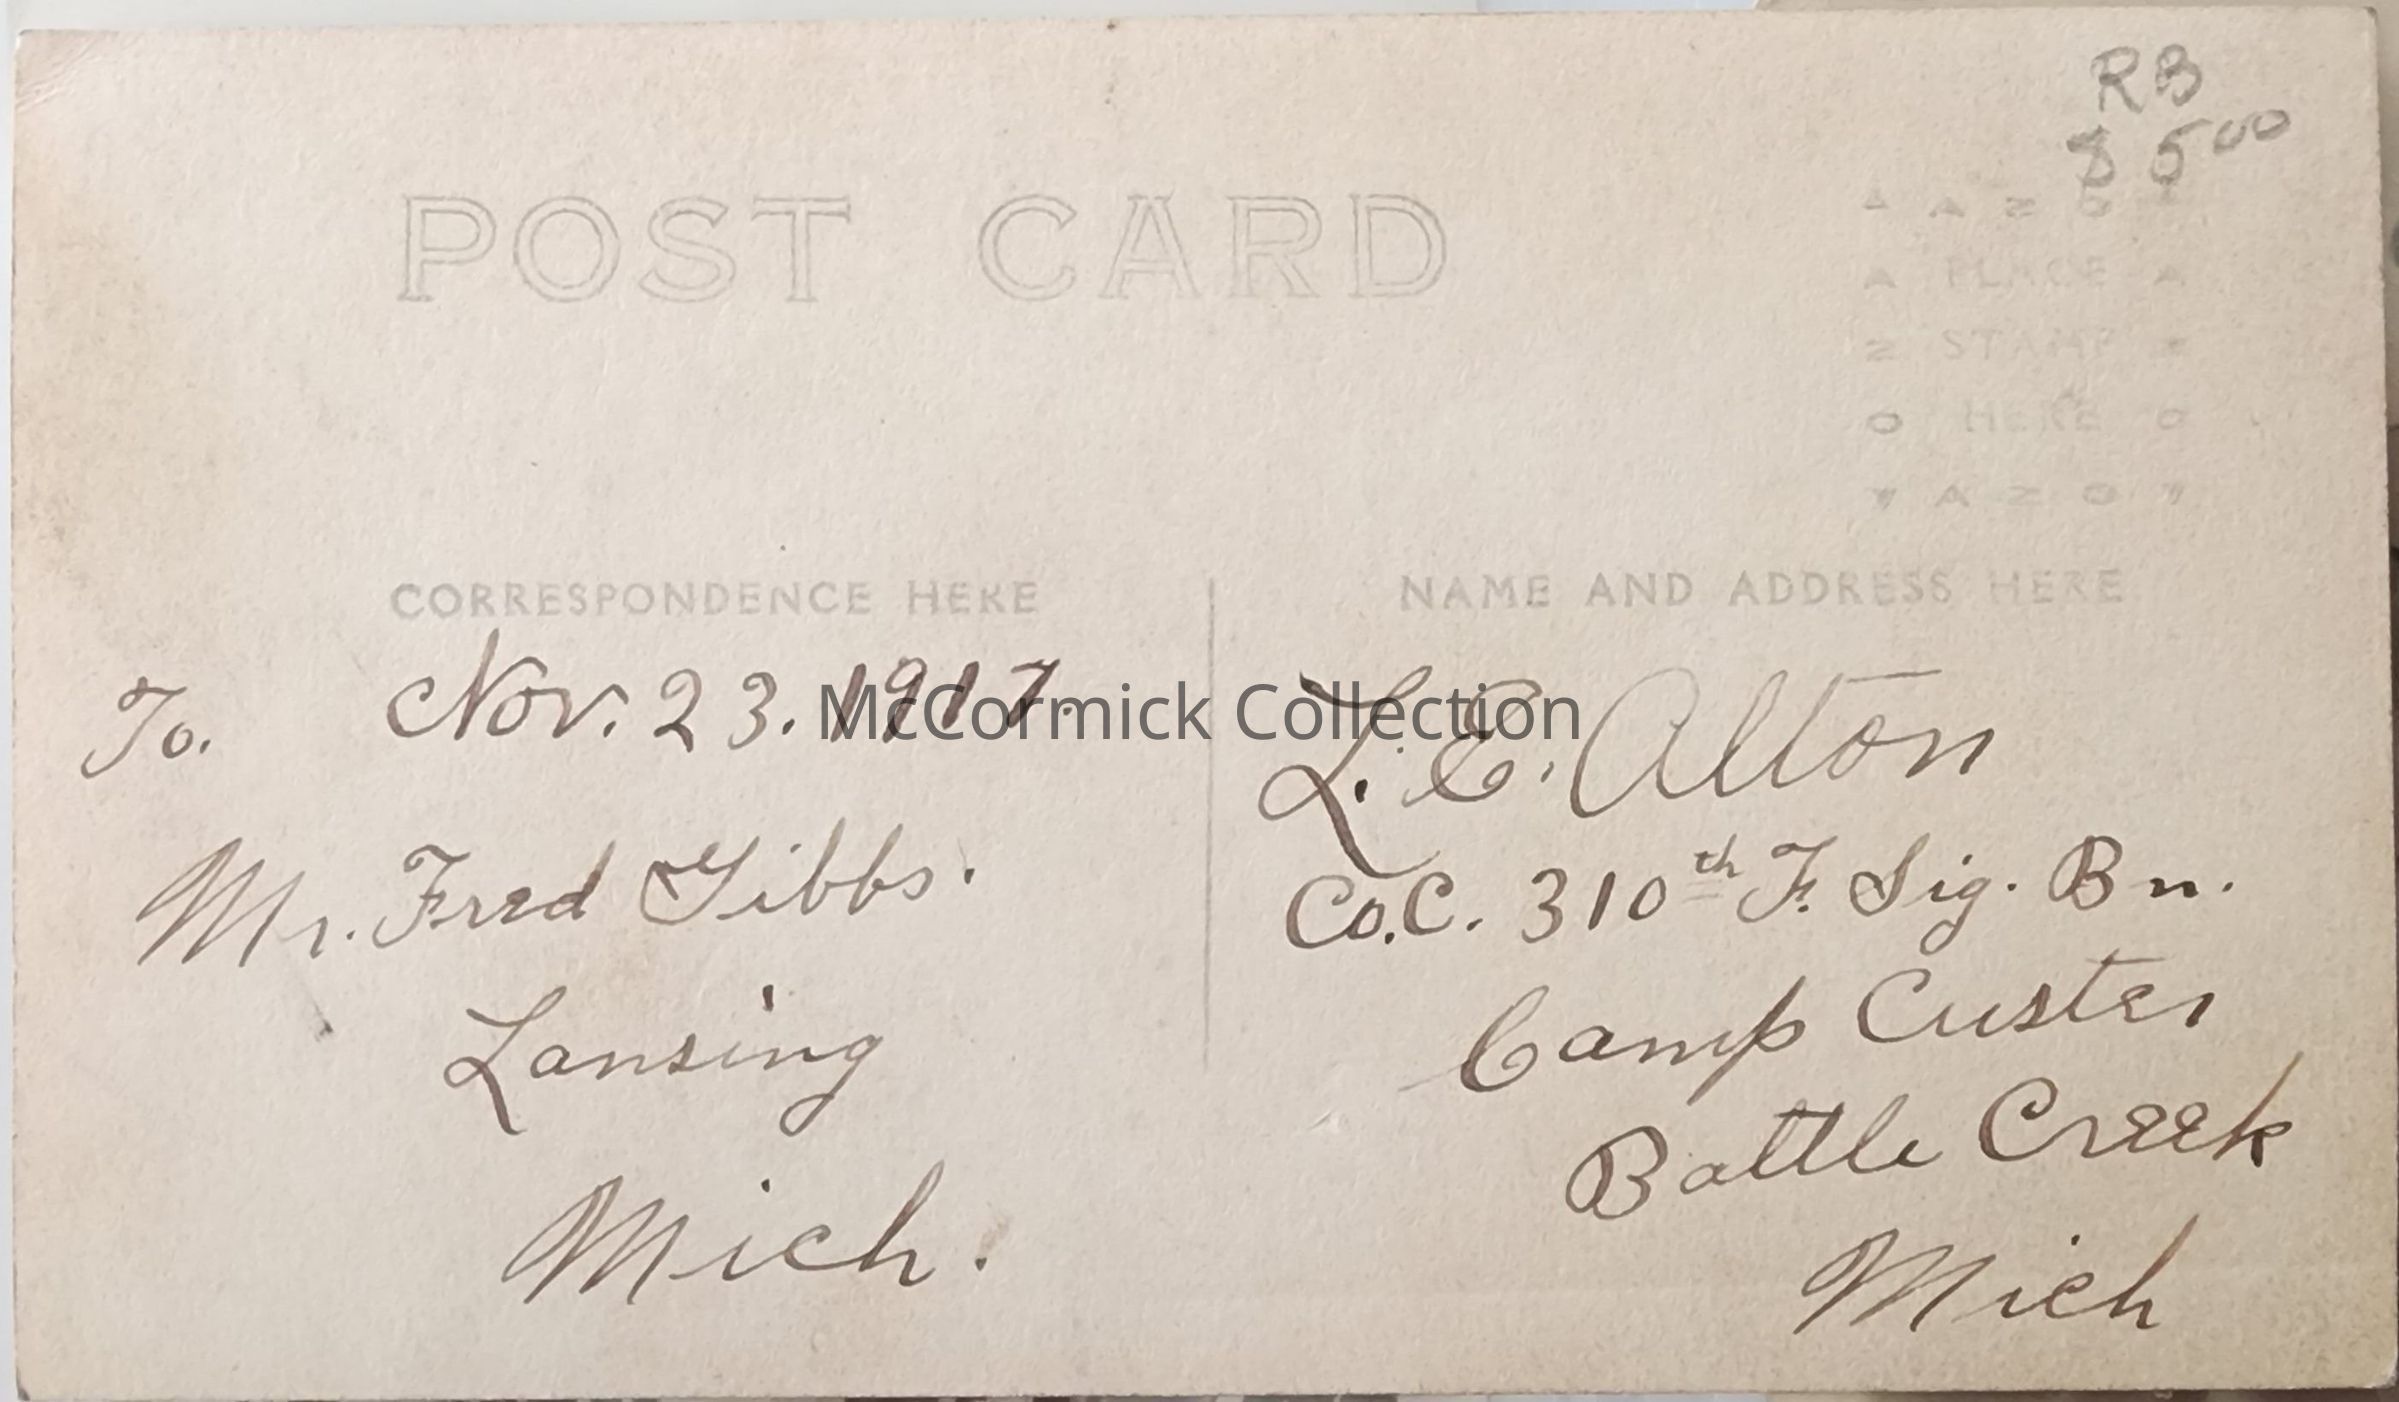 RB
$ 5 00
POST CARD
AZO
PLACE
STAMP
HERE
AZO
CORRESPONDENCE HERE
NAME AND ADDRESS HERE
To.
Nov. 23. 1917.
Mr. Fred Gibbs.
Lansing
Mich.
L. E. Alton
Co. C. 310th F. Sig. Bn.
Camp Custer
Battle Creek
Mich
McCormick Collection